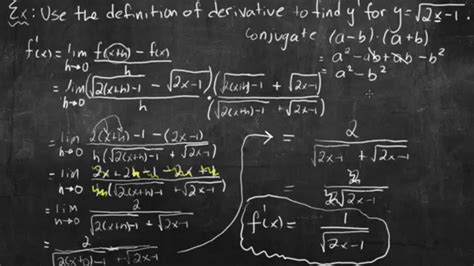 Ex: Use the definition of derivative to find y' for y=√(2x-1)
Conjugate (a-b)·(a+b)
= a² - ab + ab - b²
= a² - b²
f'(x) = lim h→0 (f(x+h) - f(x))/h
= lim h→0 (√(2(x+h)-1) - √(2x-1))/h · (√(2(x+h)-1) + √(2x-1))/(√(2(x+h)-1) + √(2x-1))
= lim h→0 (2(x+h)-1 - (2x-1))/(h(√(2(x+h)-1) + √(2x-1)))
= lim h→0 (2x + 2h - 1 - 2x + 1)/(h(√(2(x+h)-1) + √(2x-1)))
= lim h→0 2/(√(2(x+h)-1) + √(2x-1))
= 2/(√(2(x+0)-1) + √(2x-1))
= 2/(√(2x-1) + √(2x-1))
= 2/(2√(2x-1))
f'(x) = 1/√(2x-1)